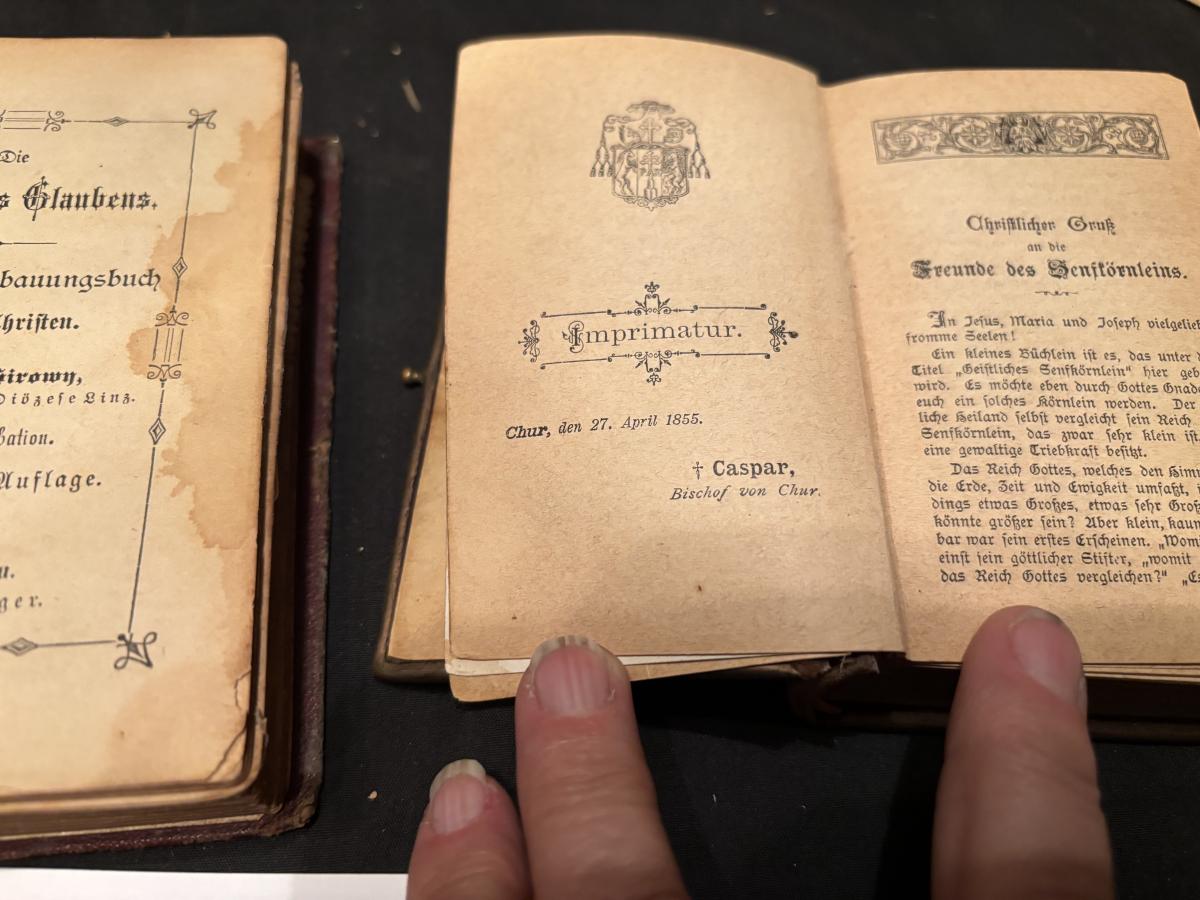 Die
s Glaubens.
bauungsbuch
hristen.
Sirowy,
Diözese Linz.
bation.
Auflage.
u.
ger.
Imprimatur.
Chur, den 27. April 1855.
† Caspar,
Bischof von Chur.
Christlicher Gruß
an die
Freunde des Senfkörnleins.
In Jesus, Maria und Joseph vielgelieb
fromme Seelen!
Ein kleines Büchlein ist es, das unter d
Titel „Geistliches Senfkörnlein" hier geb
wird. Es möchte eben durch Gottes Gnade
euch ein solches Körnlein werden. Der
liche Heiland selbst vergleicht sein Reich
Senfkörnlein, das zwar sehr klein ist,
eine gewaltige Triebkraft besitzt.
Das Reich Gottes, welches den Himm
die Erde, Zeit und Ewigkeit umfaßt, i
dings etwas Großes, etwas sehr Groß
könnte größer sein? Aber klein, kaum
bar war sein erstes Erscheinen. „Womi
einst sein göttlicher Stifter, „womit
das Reich Gottes vergleichen?" „Es